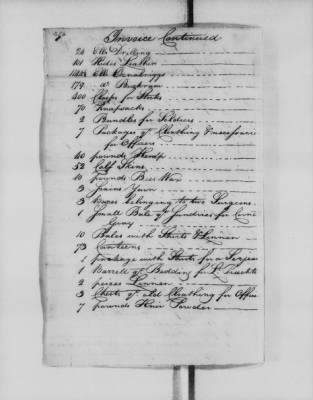 Invoice Continued
24 Ells Drilling
101 Hides Leather
Ells Oznabriggs
179 do Buckram
400 Clasps for Stocks
70 Knapsacks
2 Bundles for Soldiers
7 Packages of Cloathing &
for Officers
40 pounds Hemp
52 Calf Skins
10 pounds Bees Wax
3 Yarn
3 Boxes belonging to two Surgeons
1 Small Bale of Sundries for
Gray
10 Bales with Shirts & Linnen
73 Canteens
1 package with Shirts for a
1 Barrell of Bedding for Lt
2 pieces Linnen
3 Chests of old Cloathing for Office
7 pounds Hair Powder